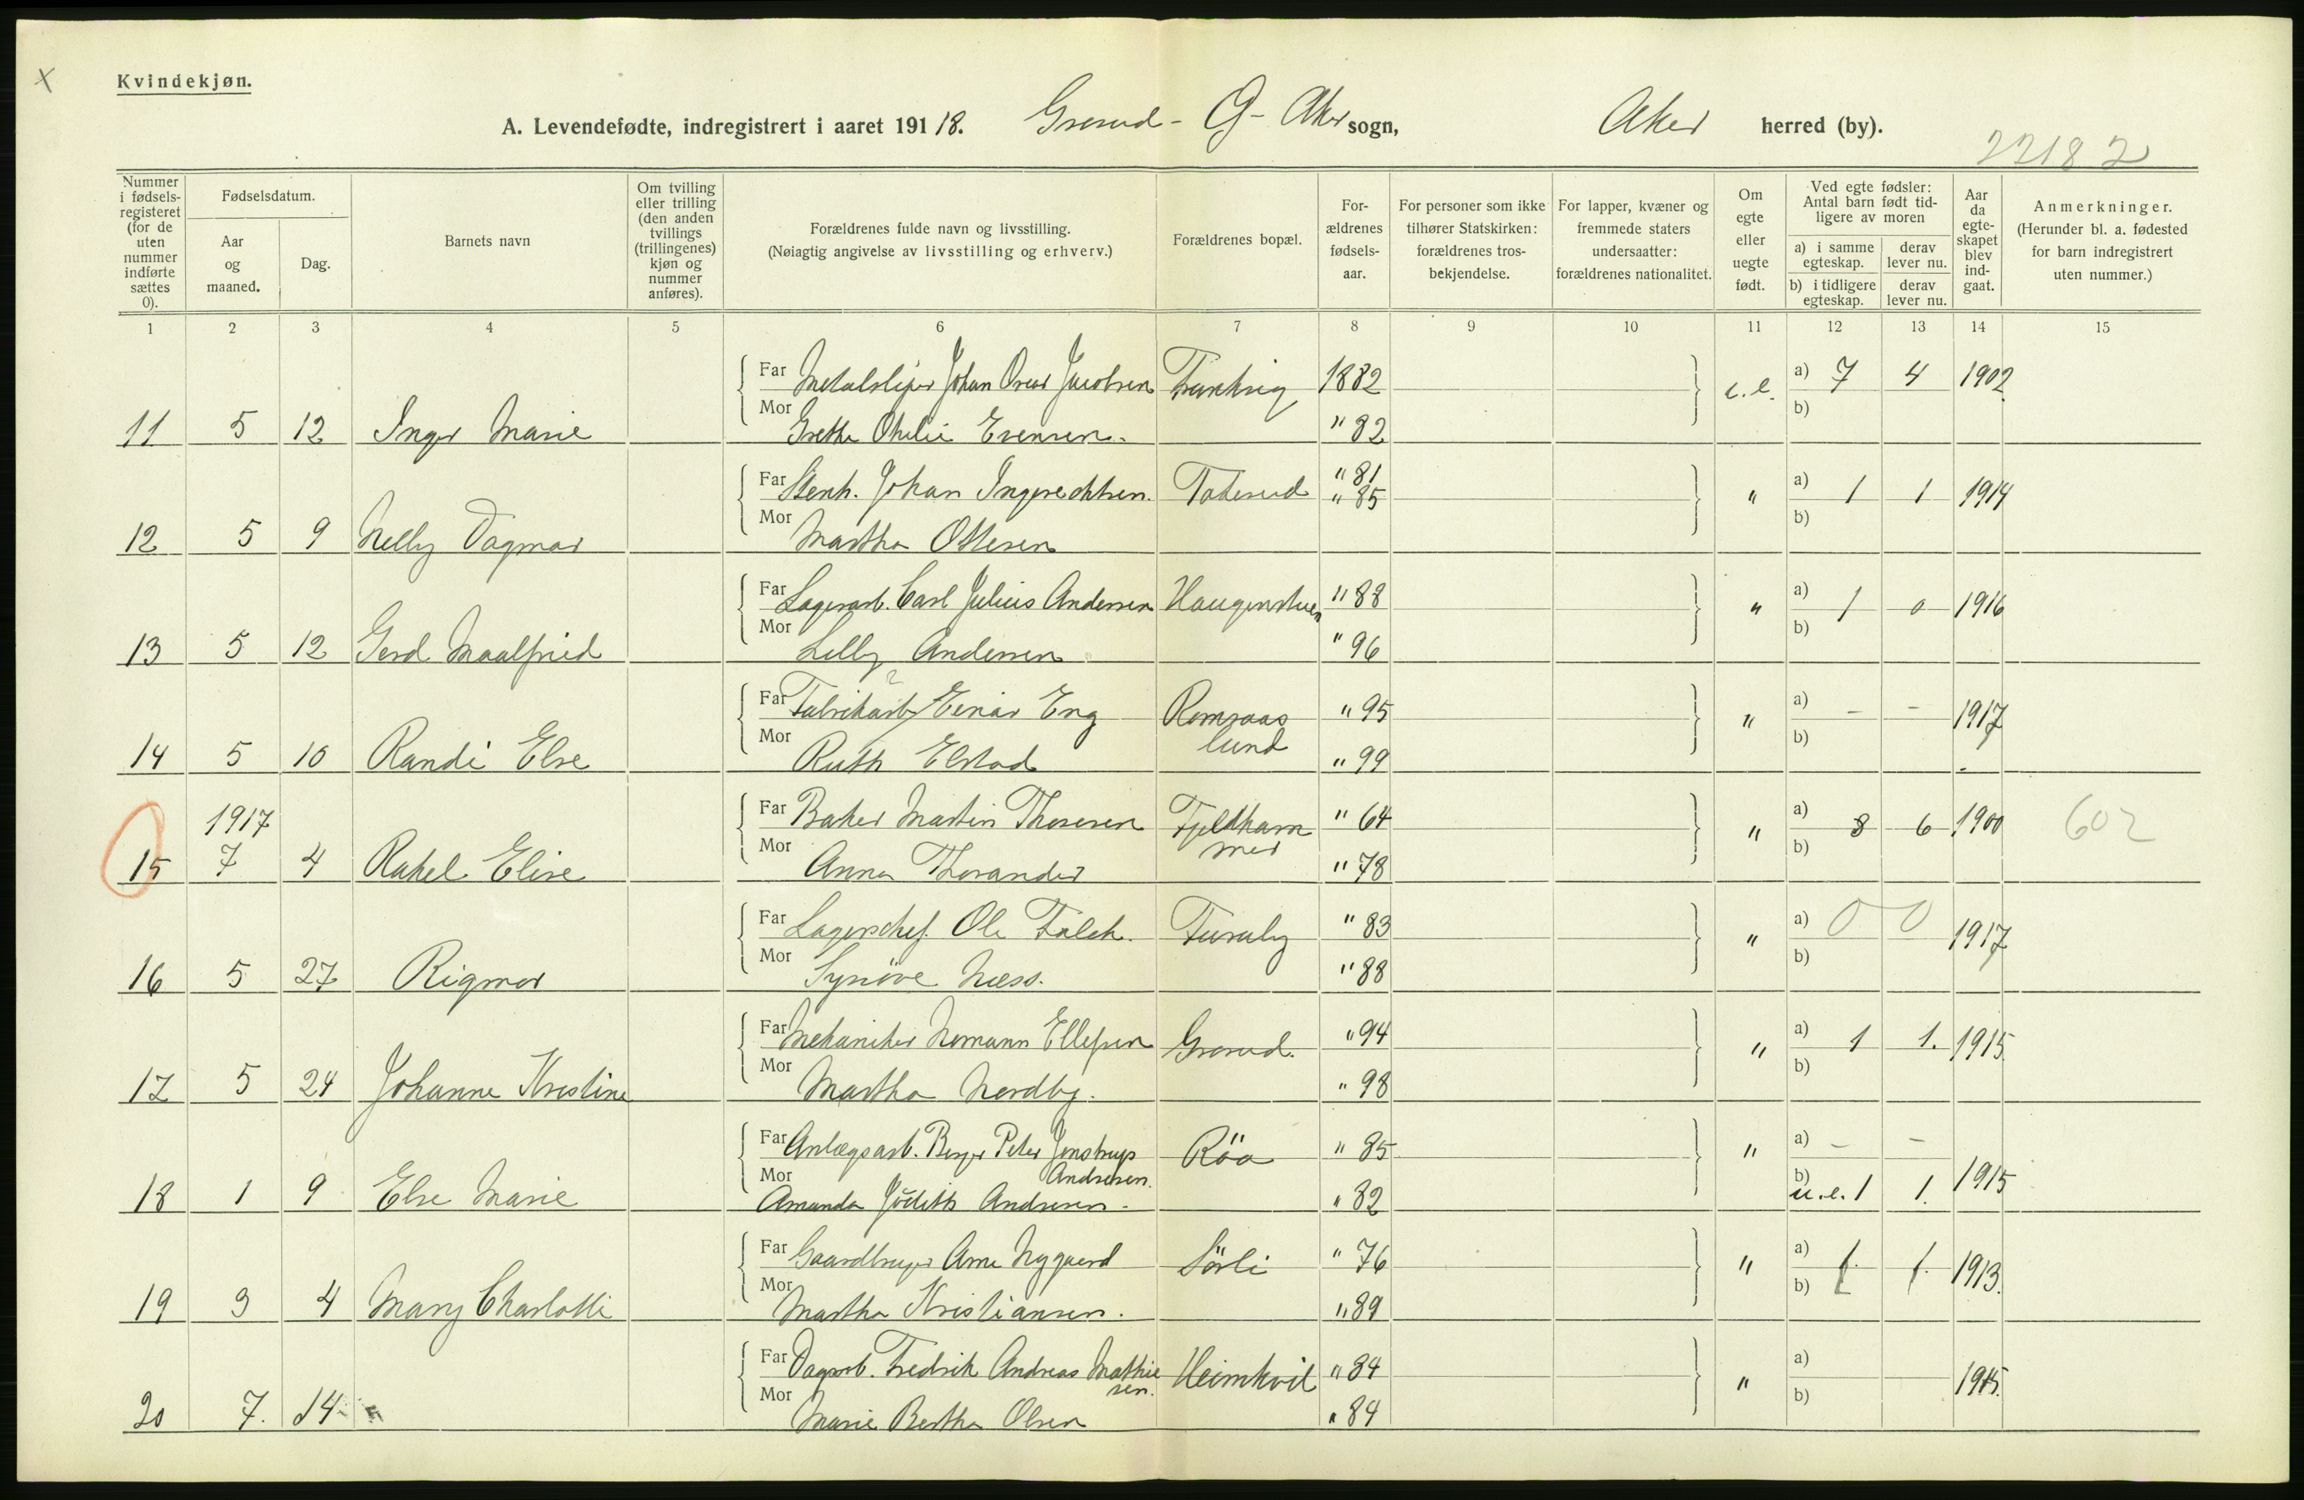 Kvindekjøn.
A. Levendefødte, indregistrert i aaret 191 18. Grorud - Ø - Aker sogn, Aker herred (by).
22182
Nummer i fødsels-registeret (for de uten nummer indførte sættes 0).
Fødselsdatum.
Aar og maaned.
Dag.
Barnets navn
Om tvilling eller trilling (den anden tvillings (trillingenes) kjøn og nummer anføres).
Forældrenes fulde navn og livsstilling.
(Nøiagtig angivelse av livsstilling og erhverv.)
Forældrenes bopæl.
For-ældrenes fødsels-aar.
For personer som ikke tilhører Statskirken: forældrenes tros-bekjendelse.
For lapper, kvæner og fremmede staters undersaatter: forældrenes nationalitet.
Om egte eller uegte født.
Ved egte fødsler: Antal barn født tid-ligere av moren
a) i samme egteskap.
derav lever nu.
b) i tidligere egteskap.
derav lever nu.
Aar da egte-skapet blev ind-gaat.
Anmerkninger.
(Herunder bl. a. fødested for barn indregistrert uten nummer.)
1 2 3 4 5 6 7 8 9 10 11 12 13 14 15
Far Metalsliper Johan Oscar Jacobsen 1882 a) 7 4 1902
Mor b)
11 5 12 Inger Marie Grethe Othilie Evensen. " 82
Far Stenh. Johan Ingebrethsen. " 81 " a) 1 1 1914
Mor " 85 b)
12 5 9 Nelly Dagmar Martha Ottesen
Far Lagerarb. Carl Julius Andersen Haugenstuen " 88 " a) 1 0 1916
Mor b)
13 5 12 Gerd Maalfrid Lilly Andersen " 96
Far Fabrikarb. Einar Eng Romsaas " 95 " a) - - 1917
Mor lund b)
14 5 10 Randi Else Ruth Elstad " 99
1917 Far Baker Martin Thoresen Fjeldham " 64 " a) 8 6 1900 602
Mor mer b)
15 7 4 Rakel Elise Anna Thorander " 78
Far Lagerchef. Ole Falck. Furuly " 83 " a) 0 0 1917
Mor b)
16 5 27 Rigmor Synöve Næss. " 88
Far Mekaniker Normann Ellefsen Grorud. " 94 " a) 1 1. 1915
Mor b)
17 5 24 Johanne Kristine Martha Nordby. " 98
Far Anlægsarb. Birger Peter Jonstrup Röa " 85 " a) - -
Mor Andresen. b) 1915
18 1 9 Else Marie Amanda Judith Andresen. " 82 u.e. 1 1.
Far Gaardbruger Arne Nygaard Sörli " 76 " a) 1. 1. 1913.
Mor b)
19 3 4 Mary Charlotte Martha Kristiansen. " 89
Far Dagarb. Fredrik Andreas Mathie Heimkvil " 84 " a) 1915.
Mor sen. b)
20 7. 14 Marie Bertha Olsen " 84